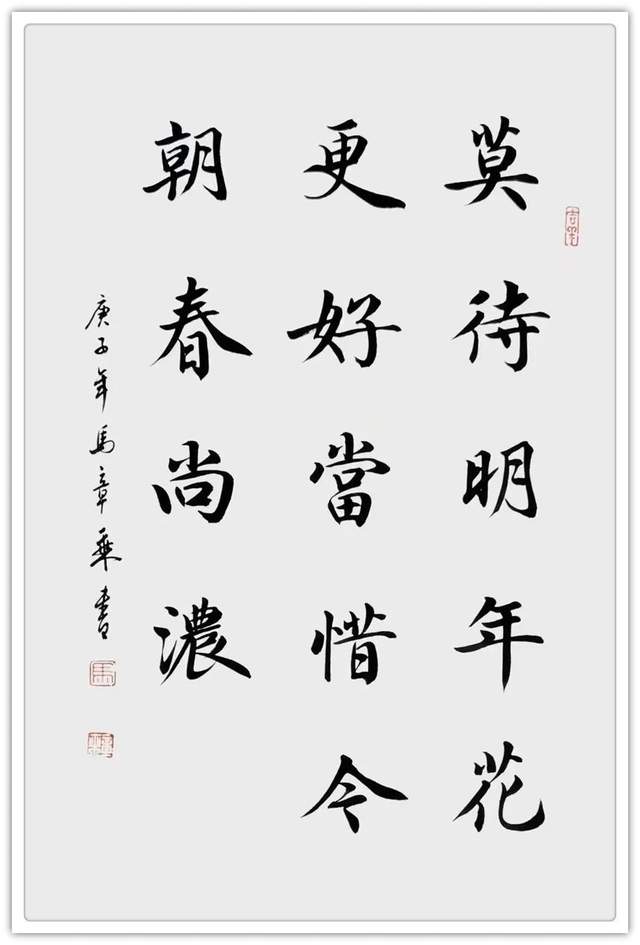 莫待明年花
更好當惜今
朝春尚濃
庚子年馬章乘書